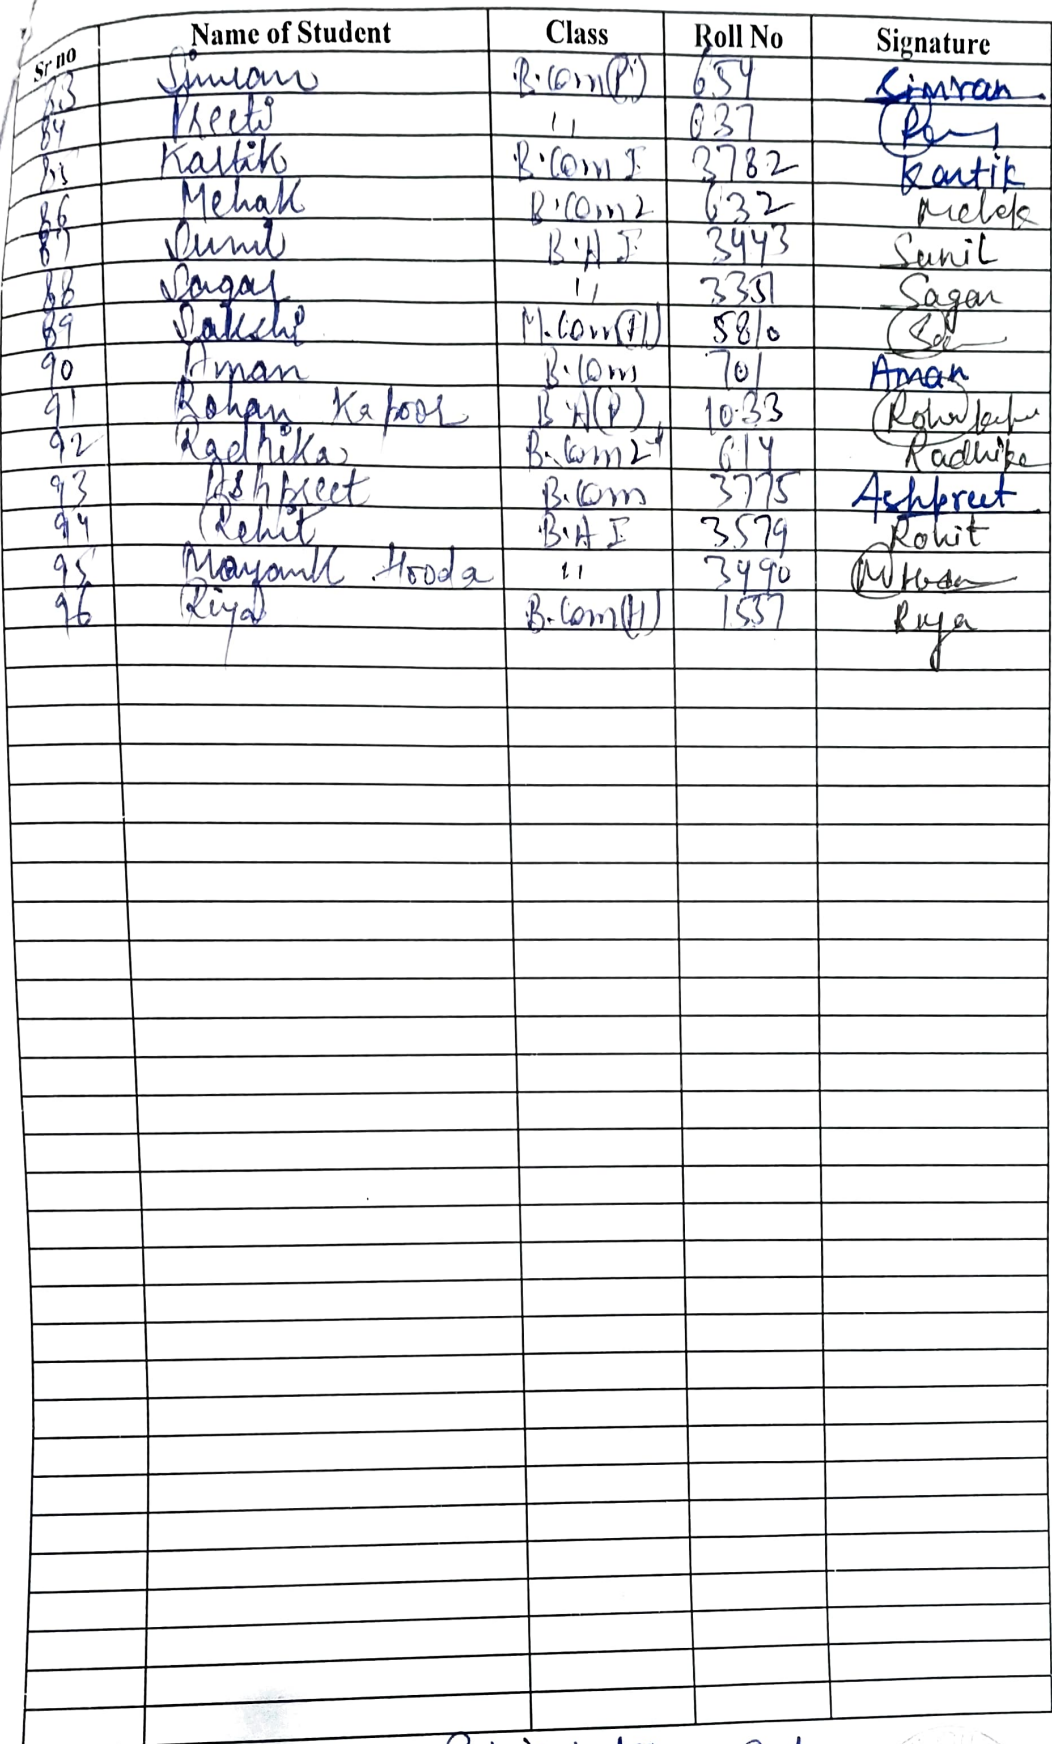 Sr no Name of Student Class Roll No Signature
83 Simran B.Com(P) 654 Simran
84 Preeti 11 637
85 Kartik B.Com I 3782 Kartik
86 Mehak B.Com 2 632 Mehak
87 Sunil B.A I 3443 Sunil
88 Sagar 11 3351 Sagar
89 Sakshi M.Com(H) 5810
90 Aman B.Com 701 Aman
91 Rohan Kapoor B.A(P) 1033
92 Radhika B.Com 614 Radhika
93 Ashpreet B.Com 3775 Ashpreet
94 Rohit B.A I 3579 Rohit
95 Mayank Hooda 11 3490
96 Riya B.Com(H) 1537 Riya